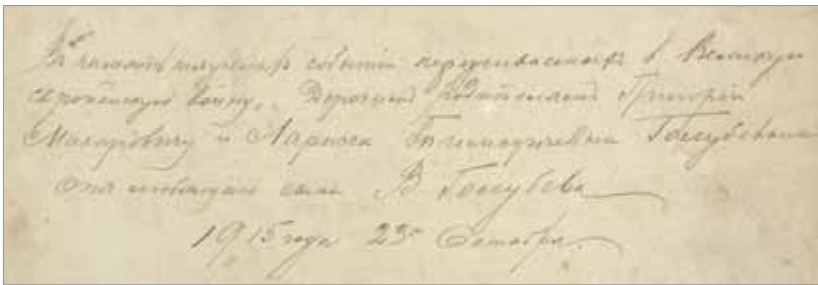 Въ память тяжелыхъ событій переживаемыхъ в Великую
Европейскую войну. Дорогимъ родителямъ Григорію
Макаровичу и Ларисе Голубевымъ
отъ любящаго сына В Голубева
1915 года 23го Октября.